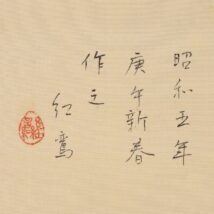 昭和五年
庚午新春
作之
紅鸞